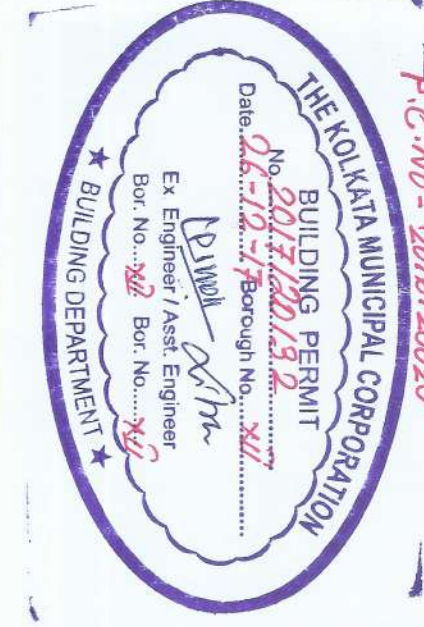 THE KOLKATA MUNICIPAL CORPORATION
BUILDING PERMIT
No. 2017/20192
Date 26-12-17 Borough No. XII
Ex Engineer / Asst. Engineer
Bor. No.... XII Bor. No..... XII
★ BUILDING DEPARTMENT ★